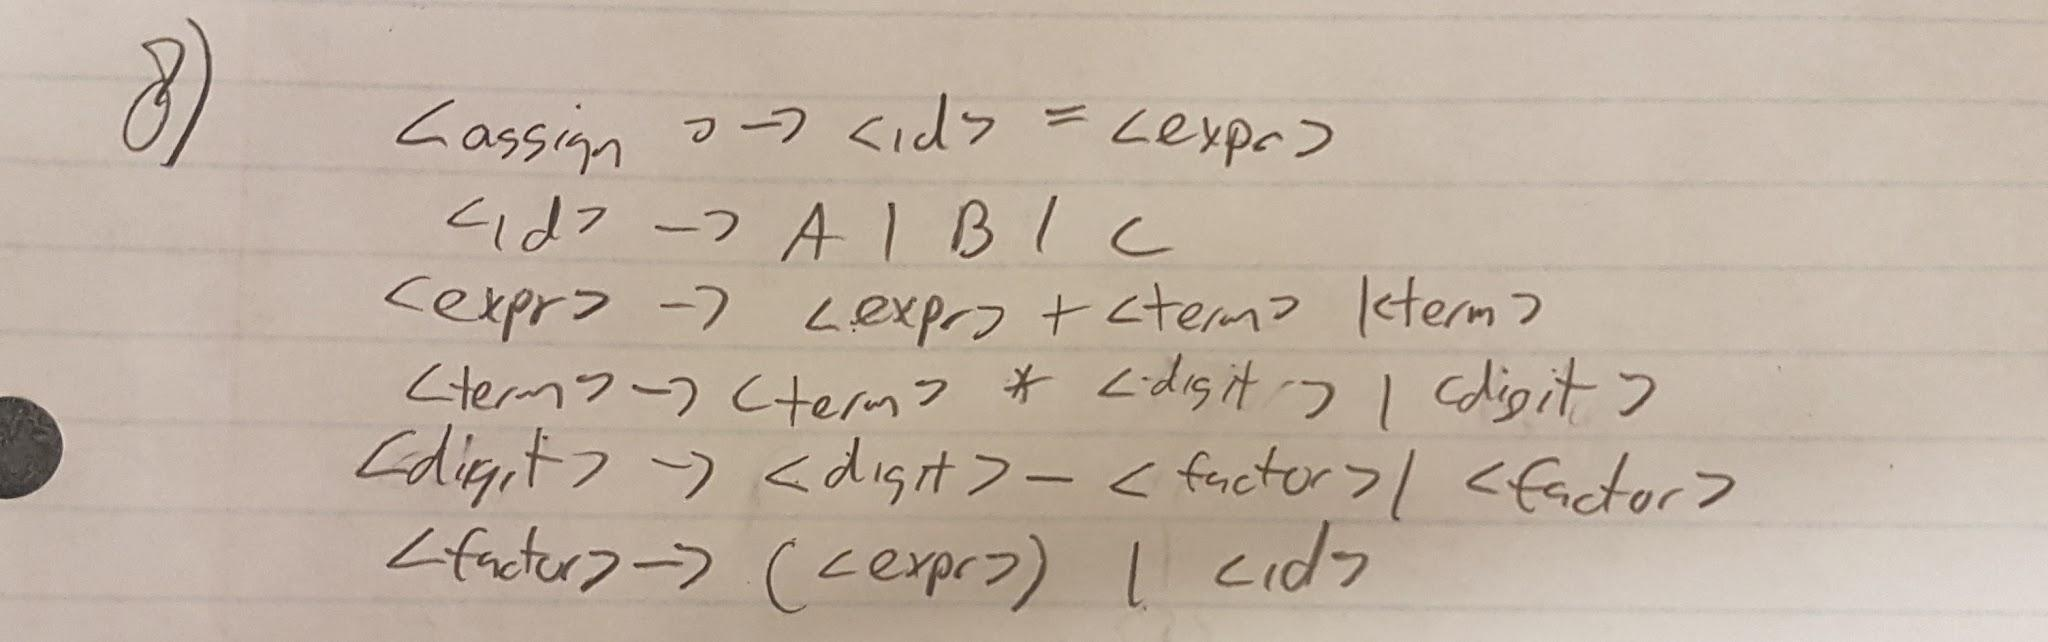 8) <assign> → <id> = <expr>
<id> → A | B | C
<expr> → <expr> + <term> | <term>
<term> → <term> * <digit> | <digit>
<digit> → <digit> - <factor> | <factor>
<factor> → (<expr>) | <id>